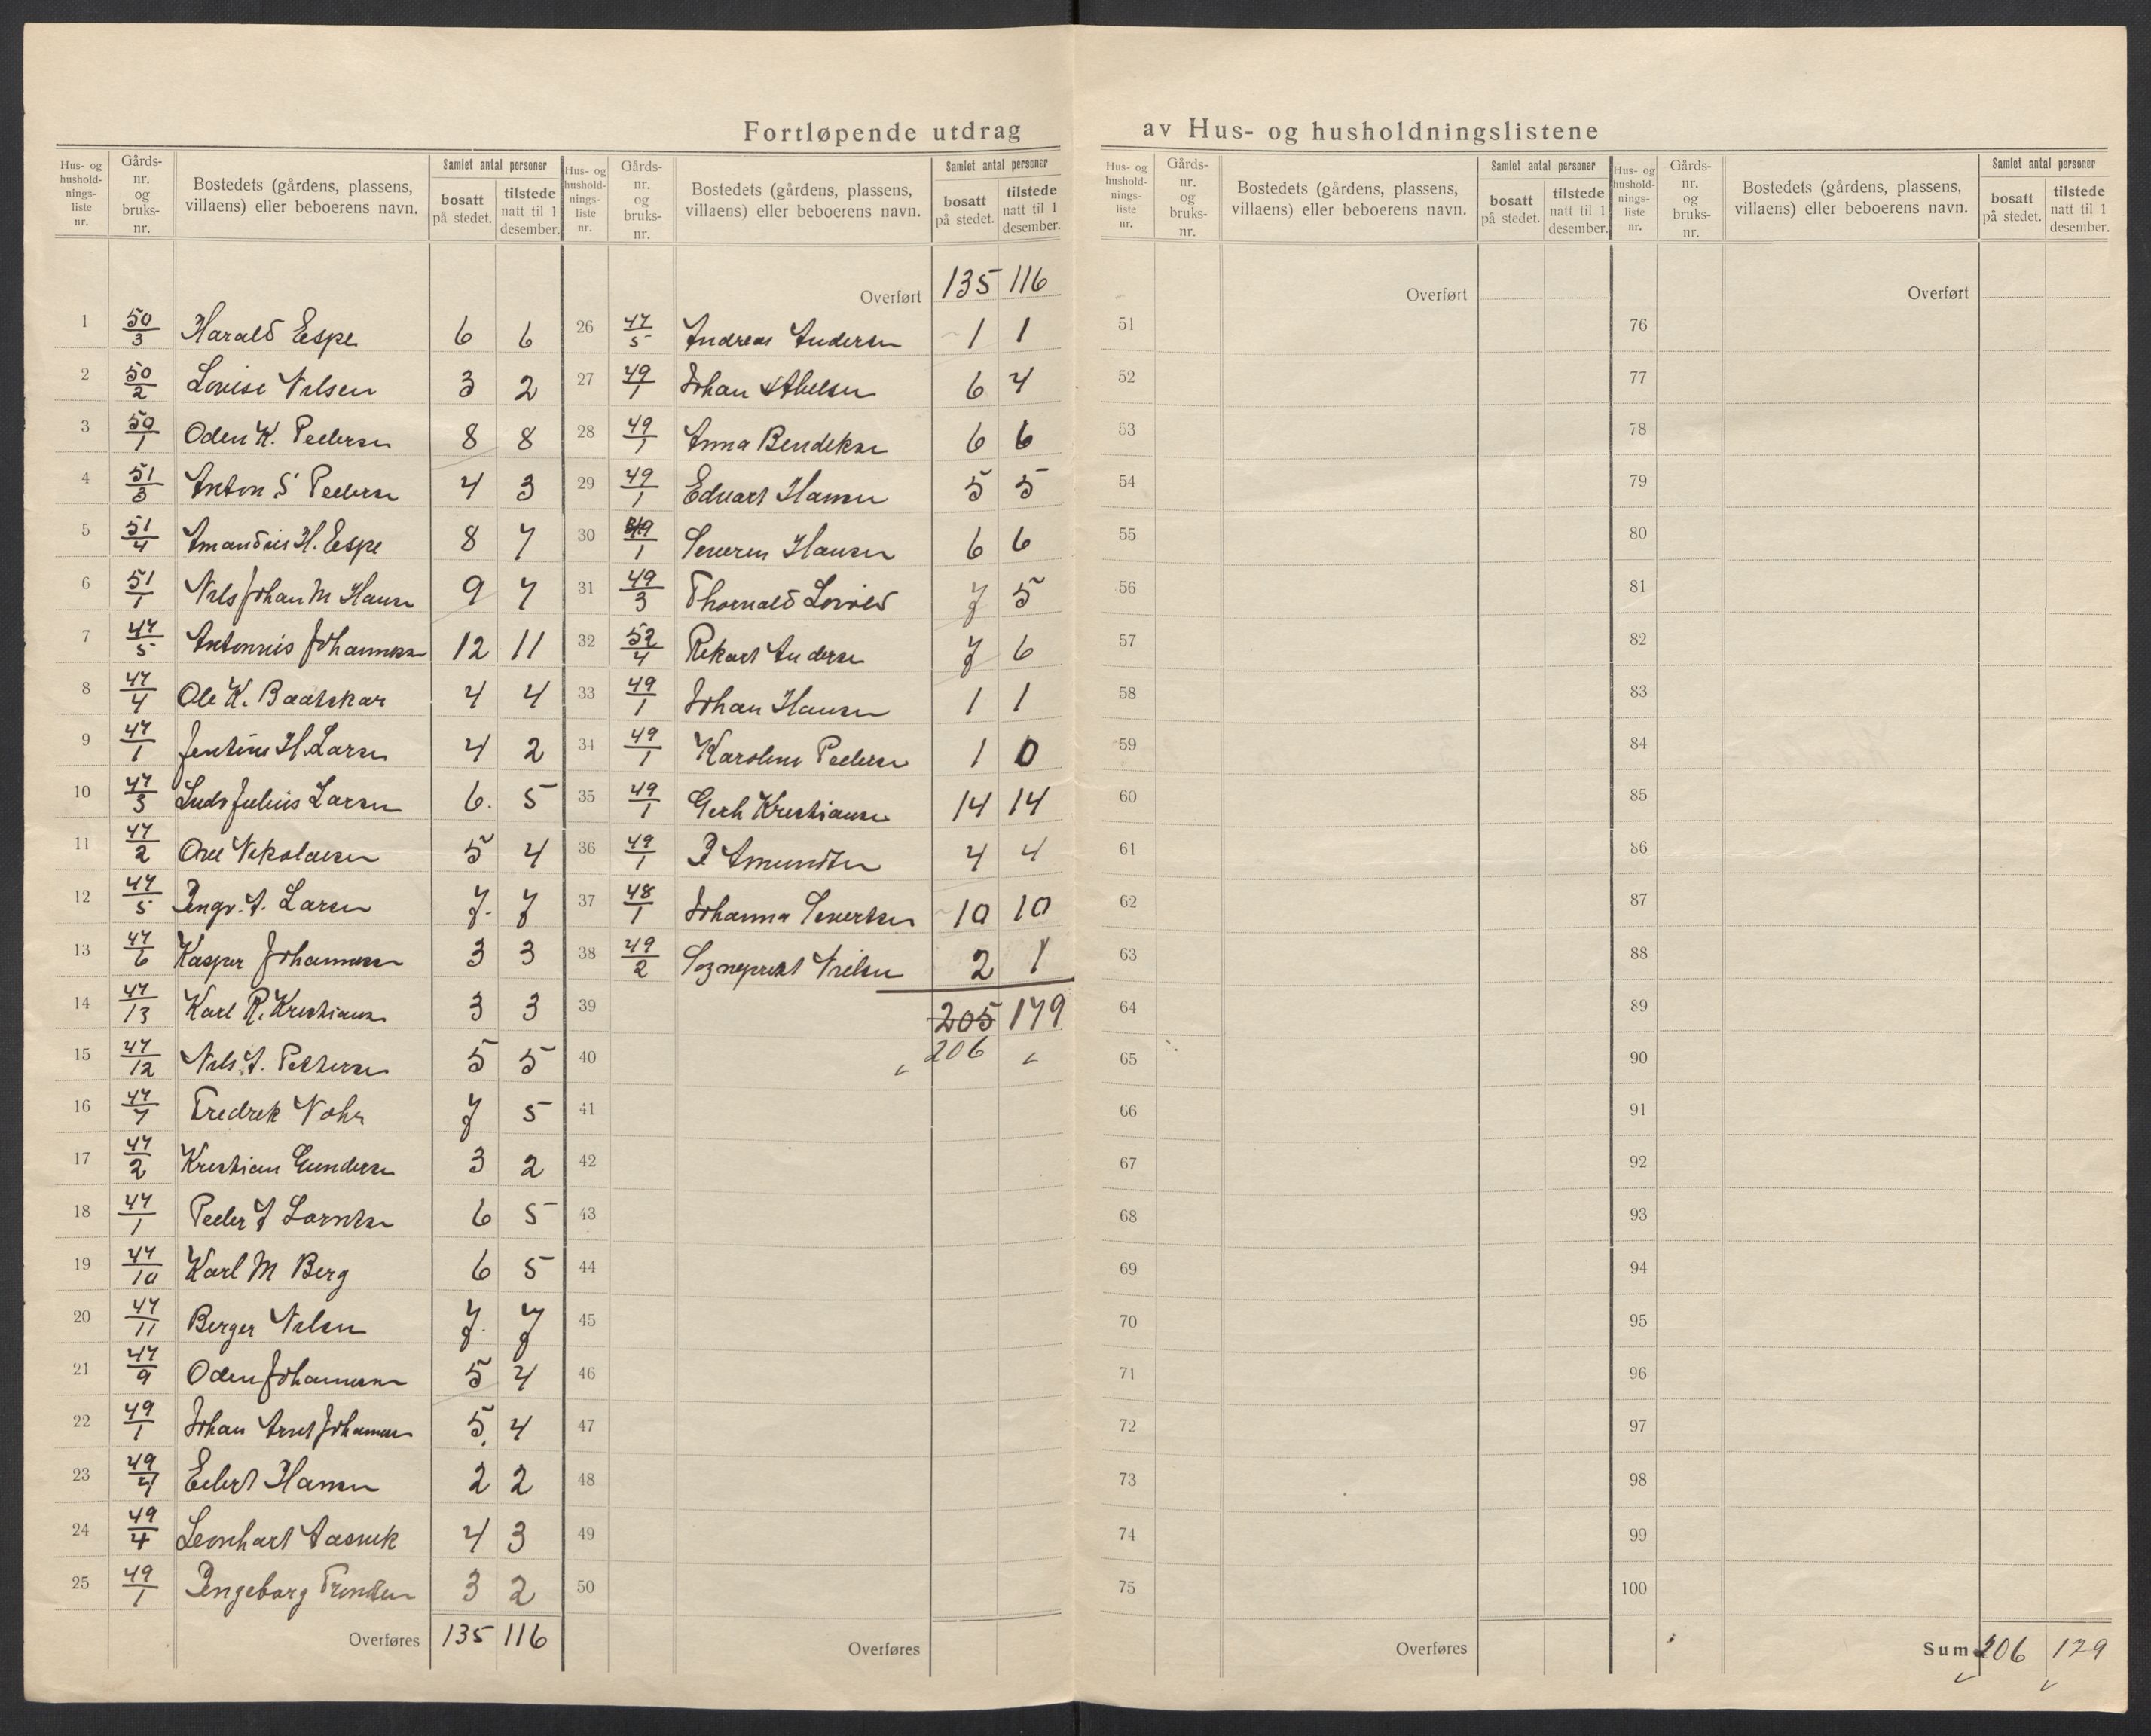 Fortløpende utdrag av Hus- og husholdningslistene
Hus- og husholdningsliste nr. Gårds-nr. og bruks-nr. Bostedets (gårdens, plassens, villaens) eller beboerens navn. Samlet antal personer bosatt på stedet. tilstede natt til 1 desember.
1 50/3 Harald Espe 6 6
2 50/2 Lovise Nilsen 3 2
3 50/1 Oden K. Pedersen 8 8
4 51/3 Anton S Pedersen 4 3
5 51/4 Amandus H. Espe 8 7
6 51/1 Nils Johan M Hansen 9 7
7 47/5 Antonius Johannesen 12 11
8 47/4 Ole K. Baatskar 4 4
9 47/1 Jentine H. Larsen 4 2
10 47/3 Julius Larsen 6. 5
11 47/2 Nikolaisen 5 4
12 47/5 Ingv. A. Larsen 7. 7
13 47/6 Kasper Johannesen 3 3
14 47/13 Karl R. Kristiansen 3 3
15 47/12 Nils A. Pettersen 5 5
16 47/7 Fredrik Nohr 7 5
17 47/2 Kristian Gundersen 3 2
18 47/1 Peder A Lorntsen 6 5
19 47/10 Karl M Berg 6 5
20 47/11 Berger Nilsen 7. 7
21 47/9 Oden Johannesen 5 4
22 49/1 Johan Arnt Johannesen 5. 4
23 49/4 Eilert Hansen 2 2
24 49/4 Leonhart Aasvik 4 3
25 49/1 Ingeborg 3 2
Overføres 135 116
Hus- og husholdningsliste nr. Gårds-nr. og bruks-nr. Bostedets (gårdens, plassens, villaens) eller beboerens navn. Samlet antal personer bosatt på stedet. tilstede natt til 1 desember.
Overført 135 116
26 47/5 Andreas Andersen 1 1
27 49/1 Johan Abelsen 6 4
28 49/1 Anna Bendiksen 6 6
29 49/1 Edvart Hansen 5 5
30 49/1 Severin Hansen 6 6
31 49/3 Thorvald Lorvild 7 5
32 52/4 Rikart Andersen 7 6
33 49/1 Johan Hansen 1 1
34 49/1 Karoline Pedersen 1 0
35 49/1 Gerh Kristiansen 14 14
36 49/1 P Amundsen 4 4
37 48/1 Johanna Sivertsen 10 10
38 49/2 Sogneprest Nielsen 2 1
39 205 179
40 206
41
42
43
44
45
46
47
48
49
50
Overføres
Hus- og husholdningsliste nr. Gårds-nr. og bruks-nr. Bostedets (gårdens, plassens, villaens) eller beboerens navn. Samlet antal personer bosatt på stedet. tilstede natt til 1 desember.
Overført
51
52
53
54
55
56
57
58
59
60
61
62
63
64
65
66
67
68
69
70
71
72
73
74
75
Overføres
Hus- og husholdningsliste nr. Gårds-nr. og bruks-nr. Bostedets (gårdens, plassens, villaens) eller beboerens navn. Samlet antal personer bosatt på stedet. tilstede natt til 1 desember.
Overført
76
77
78
79
80
81
82
83
84
85
86
87
88
89
90
91
92
93
94
95
96
97
98
99
100
Sum 206 179